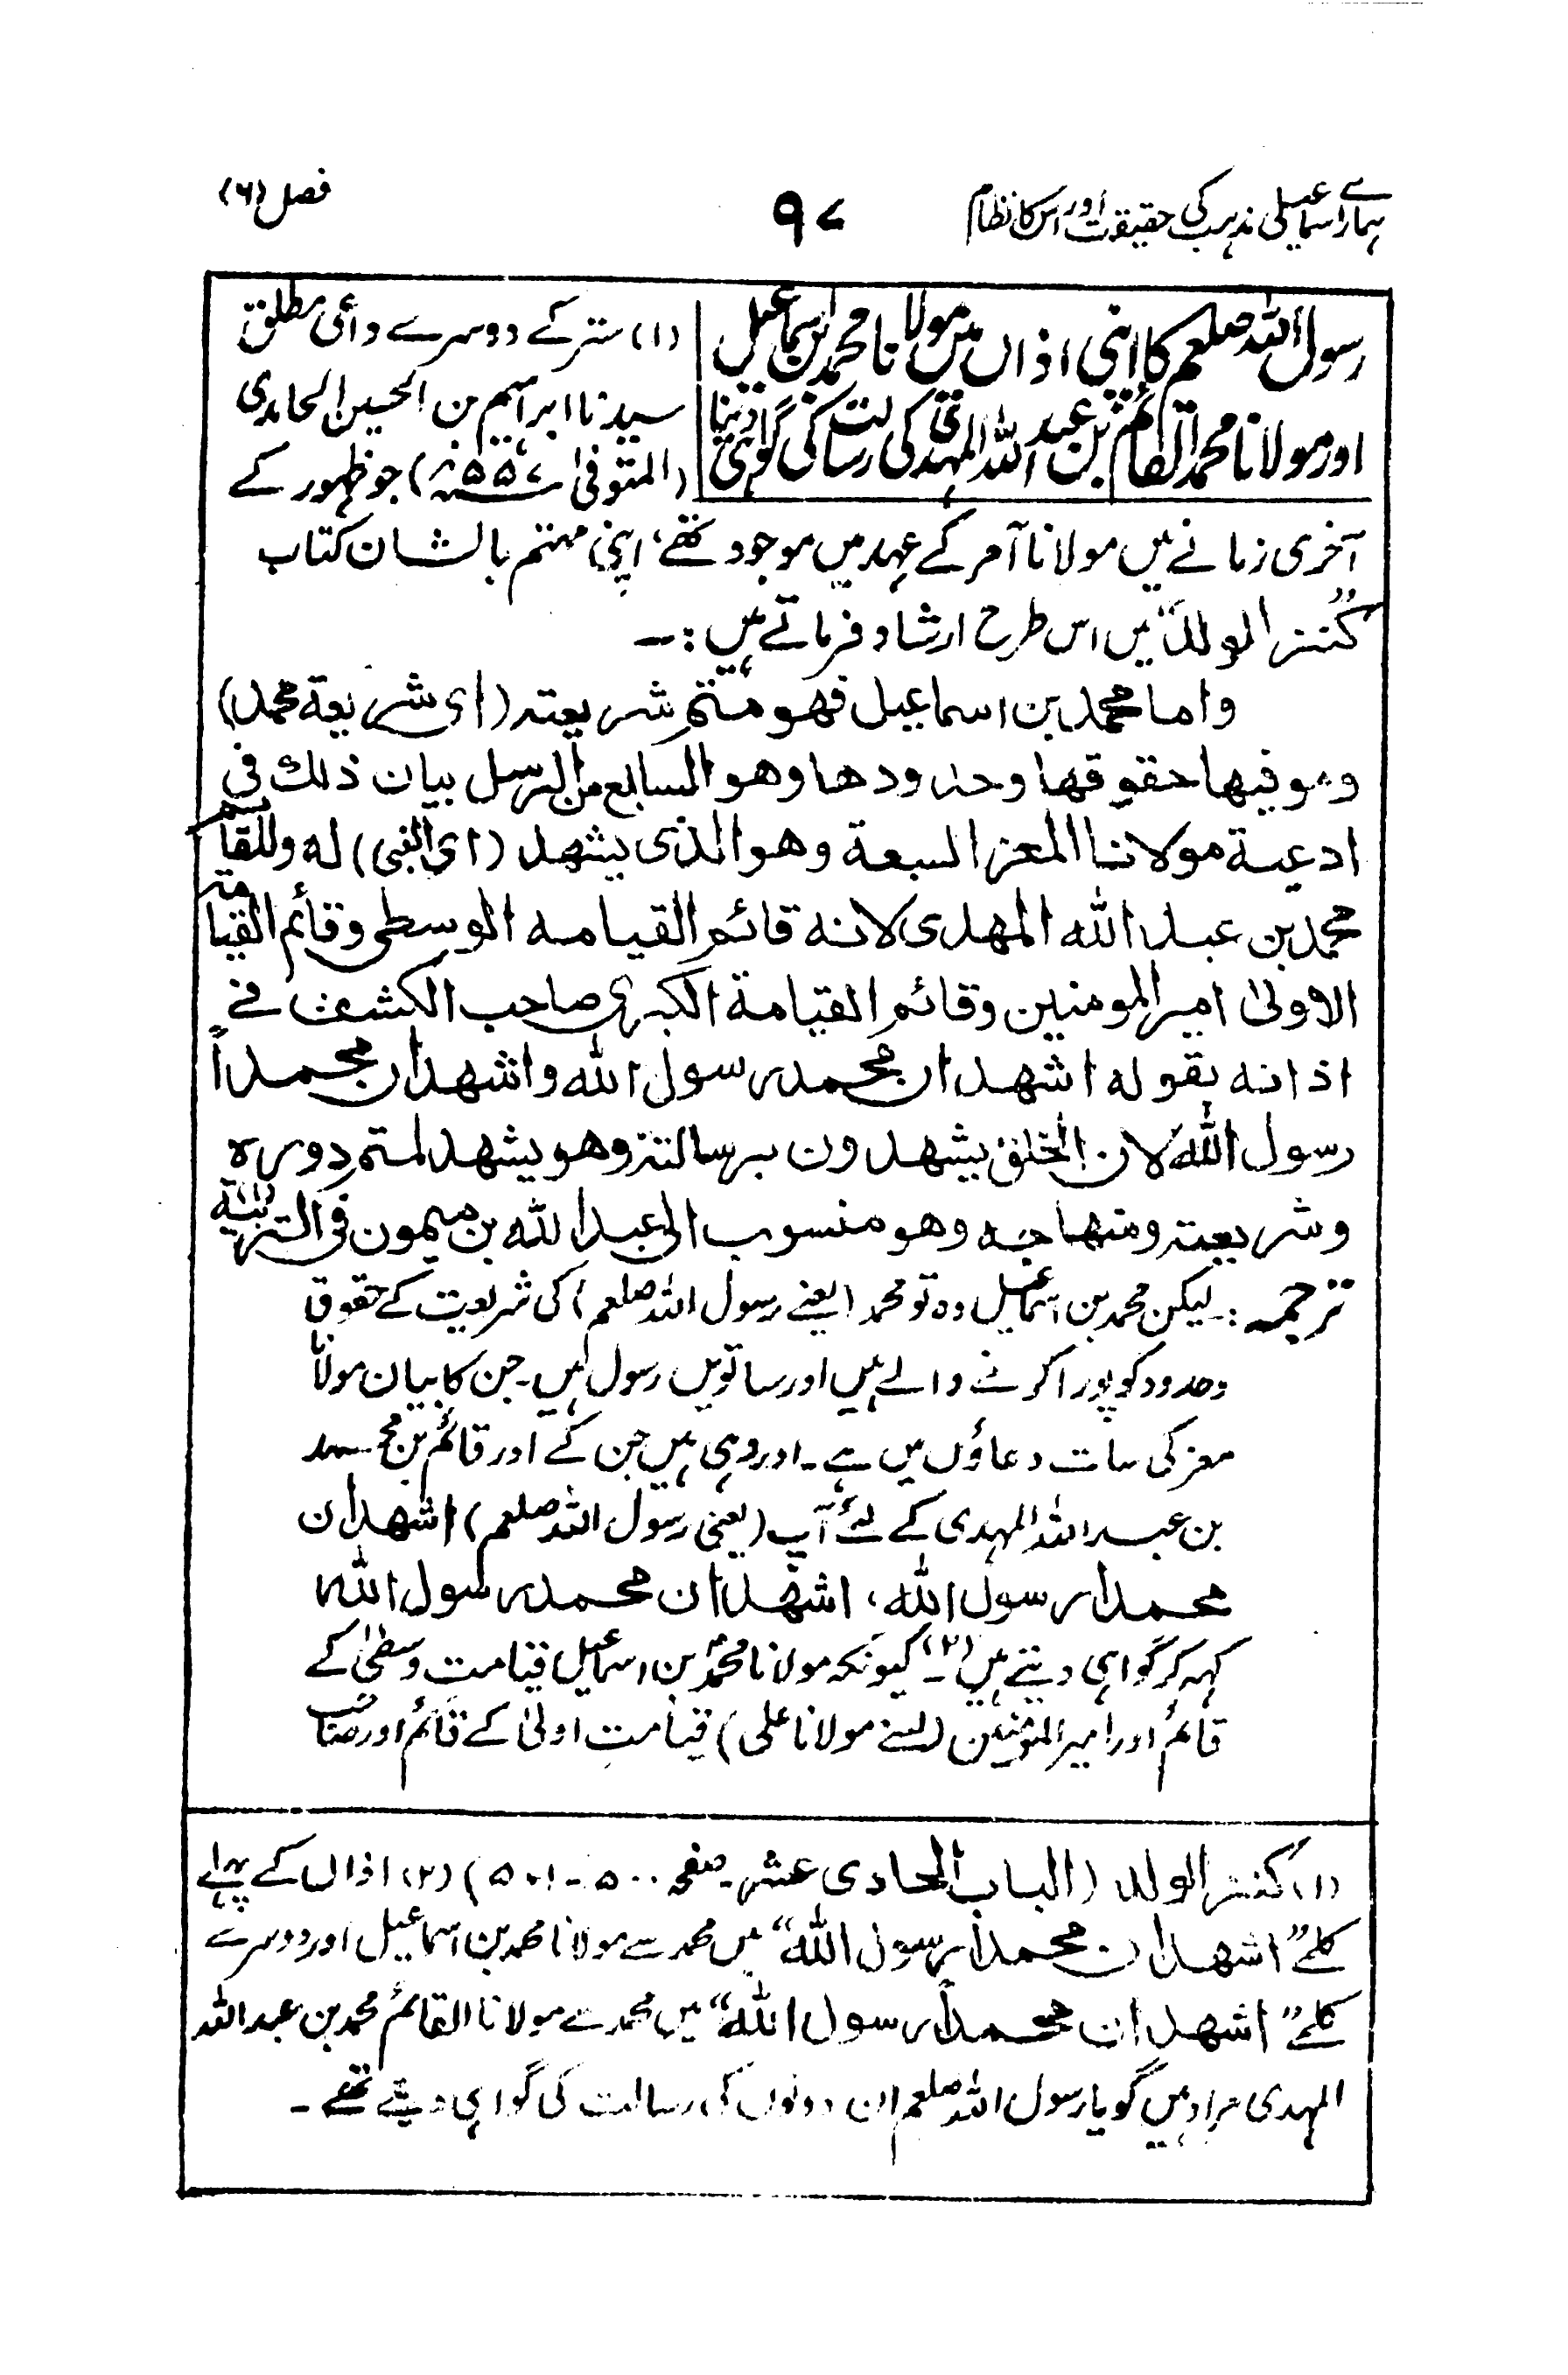 ہمارے اسماعیلی مذہب کی حقیقت اور اس کا نظام
۹۷
فصل (۶)
رسول اللہ صلعم کا اپنی اذاں میں مولانا محمد بن اسماعیل
اور مولانا محمد القائم بن عبد اللہ المہدی کی رسالت کی گواہی دینا
(۱) ستر کے دوسرے داعی مطلق
سیدنا ابراہیم بن الحسین الحامدی
(المتوفیٰ ۵۵۷ھ) جو ظہور کے
آخری زمانے میں مولانا آمر کے عہد میں موجود تھے، اپنی مہتم بالشان کتاب
"کنز الولد" میں اس طرح ارشاد فرماتے ہیں :—
واما محمد بن اسماعیل فھو متم شریعتہ (ای شریعة محمد)
وموفیھا حقوقھا وحدودھا وھو السابع من الرسل بیان ذلک فی
ادعیة مولانا المعز السبعة وھو الذی یشھد (ای النبی) له وللقائم
محمد بن عبد اللہ المھدی لانه قائم القیامه الوسطی وقائم القیامة
الاولیٰ امیر المومنین وقائم القیامة الکبریٰ صاحب الکشف فے
اذانه بقوله اشھد ان محمد رسول اللہ واشھد ان محمداً
رسول اللہ لان الخلق یشھدون برسالتہ وھو یشھد لمتم دورہ
وشریعتہ ومنھاجه وھو منسوب الی عبد اللہ بن میمون فی التربیة (۱)
ترجمہ :۔ لیکن محمد بن اسماعیل وہ تو محمد (یعنے رسول اللہ صلعم) کی شریعت کے حقوق
وحدود کو پورا کرنے والے ہیں اور ساتویں رسول ہیں۔ جن کا بیان مولانا
معز کی سات دعاؤں میں ہے۔ اور وہی ہیں جن کے اور قائم بن محمد
بن عبد اللہ المہدی کے لئے آپ (یعنی رسول اللہ صلعم) اشھد ان
محمدا رسول اللہ، اشھد ان محمد رسول اللہ
کہہ کر گواہی دیتے ہیں (۲)۔ کیونکہ مولانا محمد بن اسماعیل قیامت وسطیٰ کے
قائم اور امیر المومنین (یعنے مولانا علی) قیامتِ اولیٰ کے قائم اور صاحب
(۱) کنز الولد (الباب الحادی عشر۔ صفحہ ۵۰۰ - ۵۰۱) (۲) اذاں کے پہلے
کلمے "اشھد ان محمداً رسول اللہ" میں محمد سے مولانا محمد بن اسماعیل اور دوسرے
کلمے "اشھد ان محمداً رسول اللہ" میں محمد سے مولانا القائم محمد بن عبد اللہ
المہدی مراد ہیں گویا رسول اللہ صلعم ان دونوں کی رسالت کی گواہی دیتے تھے ۔